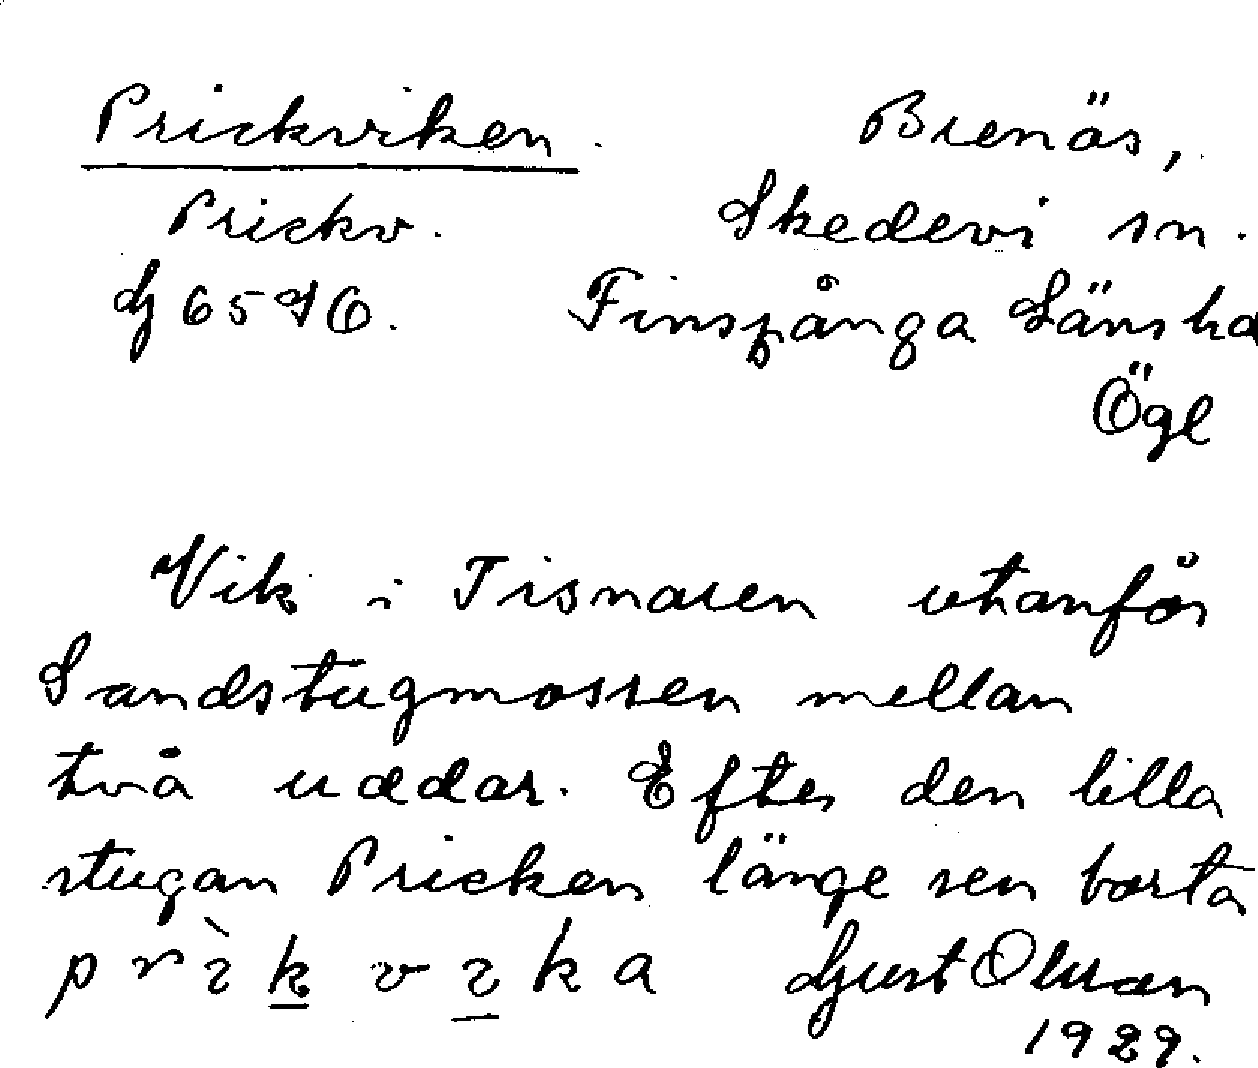 Prickviken. Brenäs,
Prickv. Skedevi sn.
Finspånga Länshd
Ögl
Vik i Tisnaren utanför
Sandstugmossen mellan
två uddar. Efter den lilla
stugan Pricken länge sen borta
Gust Olman
1929.